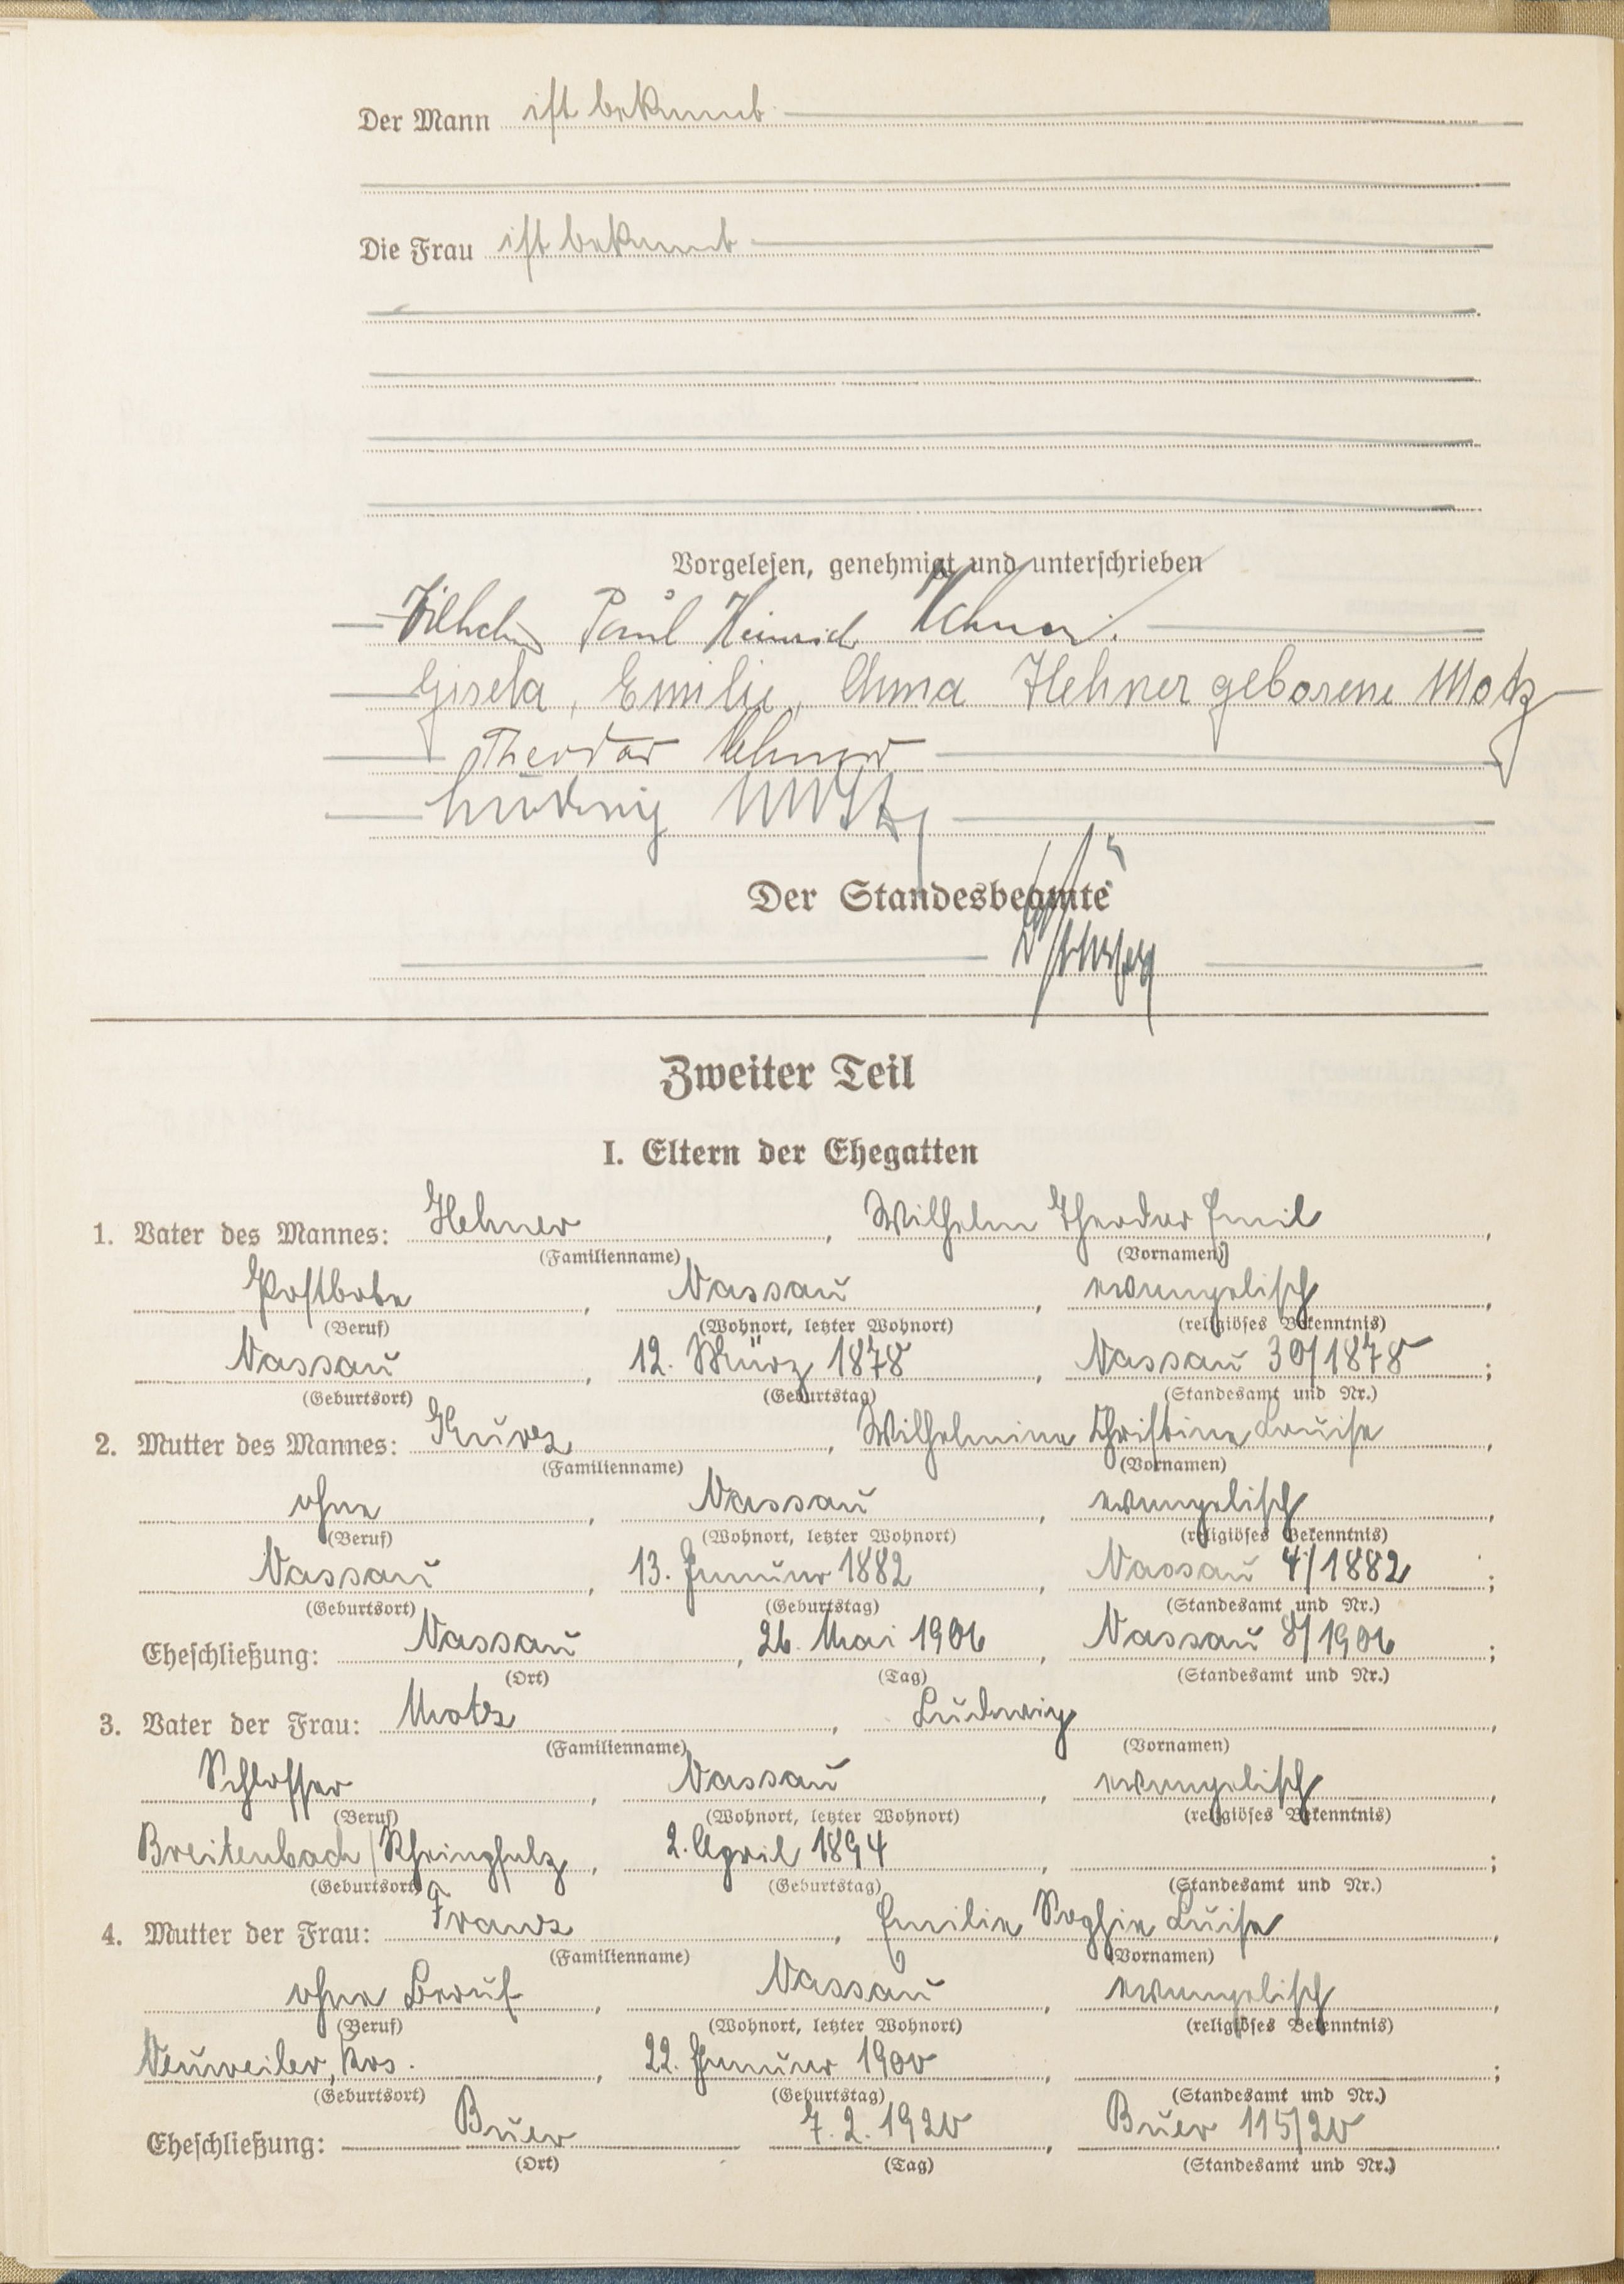 Der Mann ist bekannt
Die Frau ist bekannt
Vorgelesen, genehmigt und unterschrieben
Wilhelm Paul Heinrich Hehner.
Gisela, Emilie, Anna Hehner geborene Motz
Theodor Hehner
Ludwig Motz
Der Standesbeamte
Zweiter Teil
I. Eltern der Ehegatten
1. Vater des Mannes: Hehner, Wilhelm Theodor Emil,
(Familienname) (Vornamen)
Postbote, Nassau, evangelisch,
(Beruf) (Wohnort, letzter Wohnort) (religiöses Bekenntnis)
Nassau, 12. März 1878, Nassau 30/1878;
(Geburtsort) (Geburtstag) (Standesamt und Nr.)
2. Mutter des Mannes: Kurz, Wilhelmine Christine Louise,
(Familienname) (Vornamen)
ohne, Nassau, evangelisch,
(Beruf) (Wohnort, letzter Wohnort) (religiöses Bekenntnis)
Nassau, 13. Januar 1882, Nassau 4/1882;
(Geburtsort) (Geburtstag) (Standesamt und Nr.)
Eheschließung: Nassau, 26. Mai 1906, Nassau 8/1906;
(Ort) (Tag) (Standesamt und Nr.)
3. Vater der Frau: Motz, Ludwig,
(Familienname) (Vornamen)
Schlosser, Nassau, evangelisch,
(Beruf) (Wohnort, letzter Wohnort) (religiöses Bekenntnis)
Breitenbach/Rheinpfalz, 2. April 1894, ;
(Geburtsort) (Geburtstag) (Standesamt und Nr.)
4. Mutter der Frau: Franz, Emilie Sophie Luise,
(Familienname) (Vornamen)
ohne Beruf, Nassau, evangelisch,
(Beruf) (Wohnort, letzter Wohnort) (religiöses Bekenntnis)
Neuweiler, Krs., 22. Januar 1900, ;
(Geburtsort) (Geburtstag) (Standesamt und Nr.)
Eheschließung: Buer 7.2.1920, Buer 115/20
(Ort) (Tag) (Standesamt und Nr.)